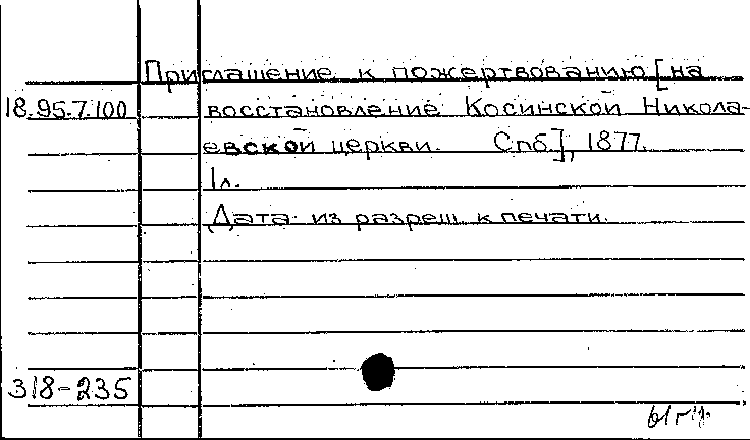 Приглашение к пожертвованию [на
18.95.7.100 восстановление Косинской Никола-
евской церкви. Спб.], 1877.
1л.
Дата из разреш. к печати.
318-235